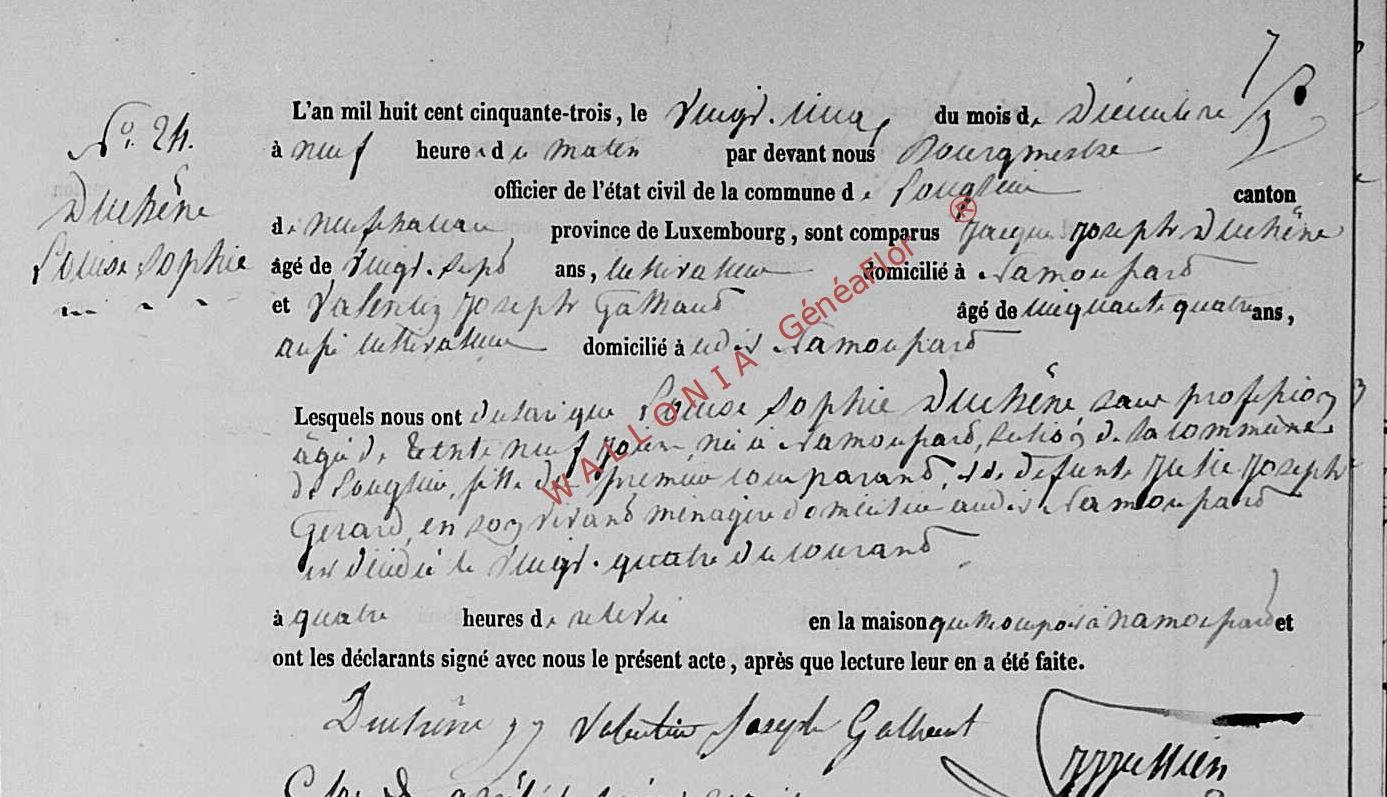 N.o 24.
Duchêne
Louise Sophie
L'an mil huit cent cinquante-trois, le Vingt-cinq du mois de Décembre
à neuf heures du matin par devant nous Bourgmestre
officier de l'état civil de la commune de Longlier canton
de neufchateau province de Luxembourg, sont comparus Jacques Joseph Duchêne
âgé de Vingt-sept ans, cultivateur domicilié à Namoussart
et Valentin Joseph Galhaut âgé de cinquante quatre ans,
aussi cultivateur domicilié à udit Namoussart
Lesquels nous ont déclaré que Louise Sophie Duchêne sans profession
âgée de trente neuf jours, née à Namoussart, section de la commune
de Longlier, fille du premier comparant, et de défunte Julie Joseph
Gerard, en son vivant ménagère domiciliée audit Namoussart
est décédée le Vingt-quatre du courant
à quatre heures de relevée en la maison qu'elle occupait à Namoussart et
ont les déclarants signé avec nous le présent acte, après que lecture leur en a été faite.
Duchêne JJ Valentin Joseph Galhaut
WALLONIA GénéaFlor ®